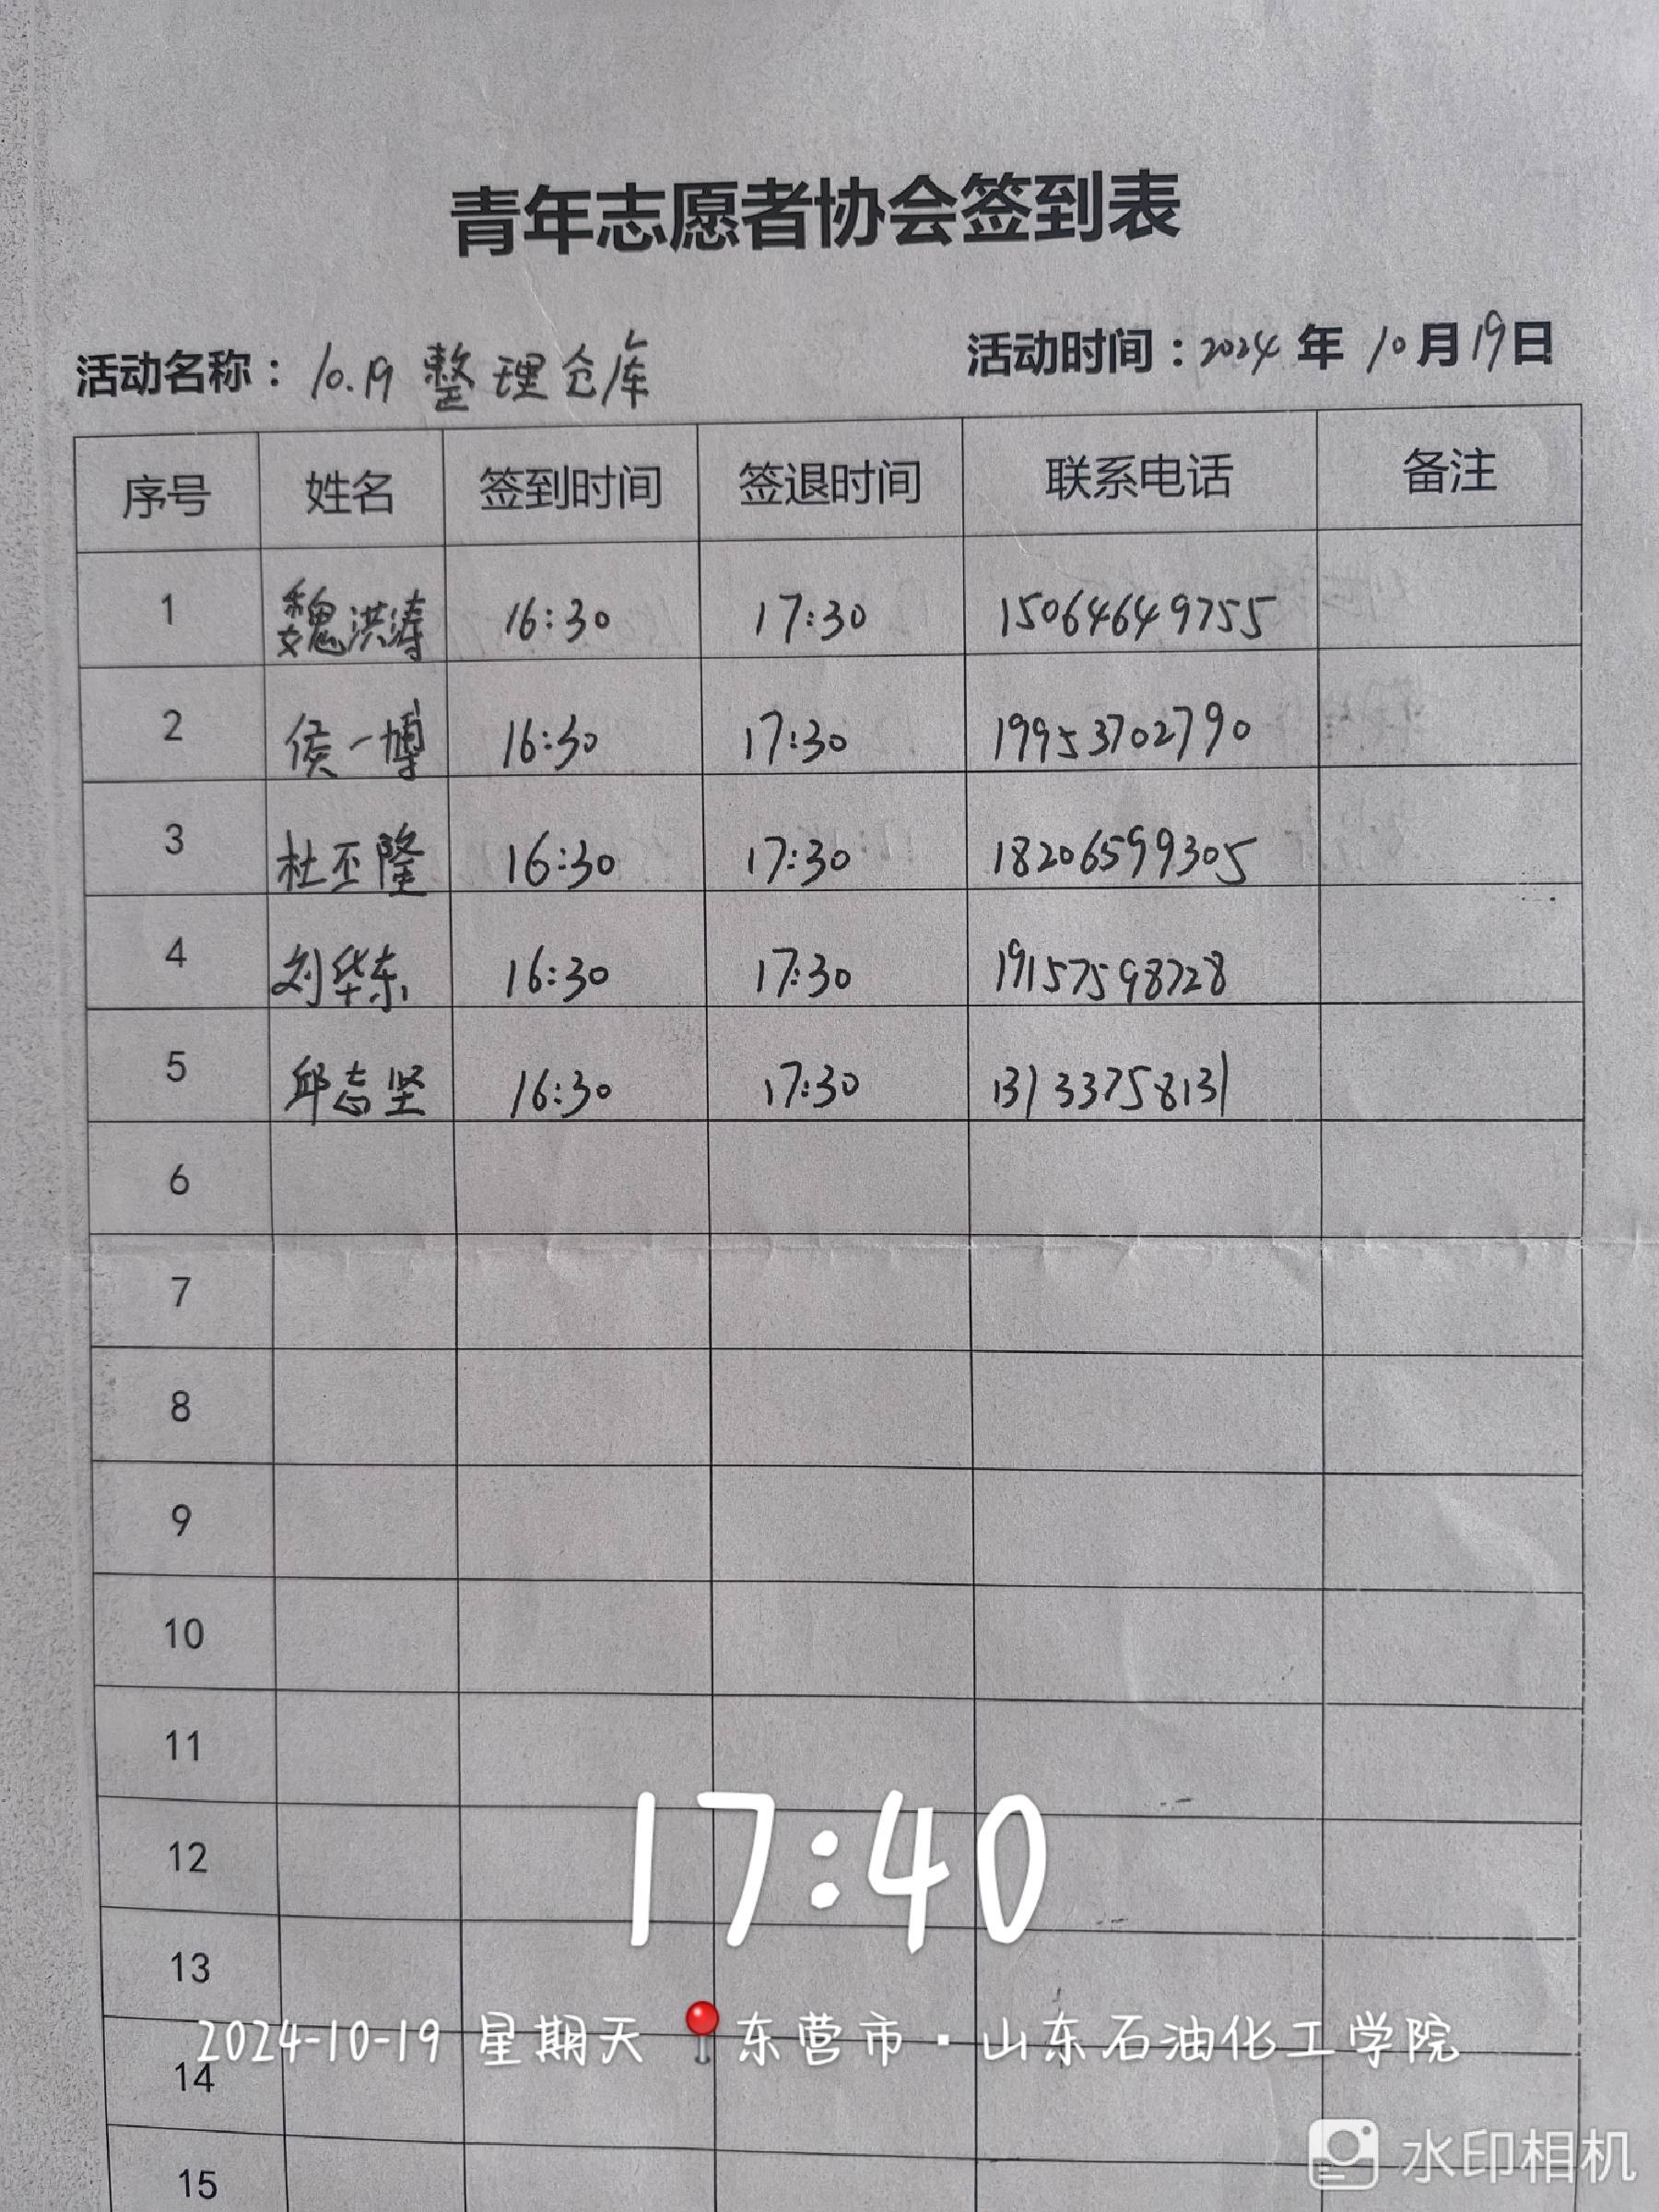 青年志愿者协会签到表
活动名称：10.19 整理仓库 活动时间：2024年 10月19日
序号 姓名 签到时间 签退时间 联系电话 备注
1 魏洪涛 16:30 17:30 15064649755
2 侯一博 16:30 17:30 19953702790
3 杜丕隆 16:30 17:30 18206599305
4 刘华东 16:30 17:30 19157598728
5 邱志坚 16:30 17:30 13133758131
6
7
8
9
10
11
17:40
12
13
2024-10-19 星期天 东营市·山东石油化工学院
14
水印相机
15